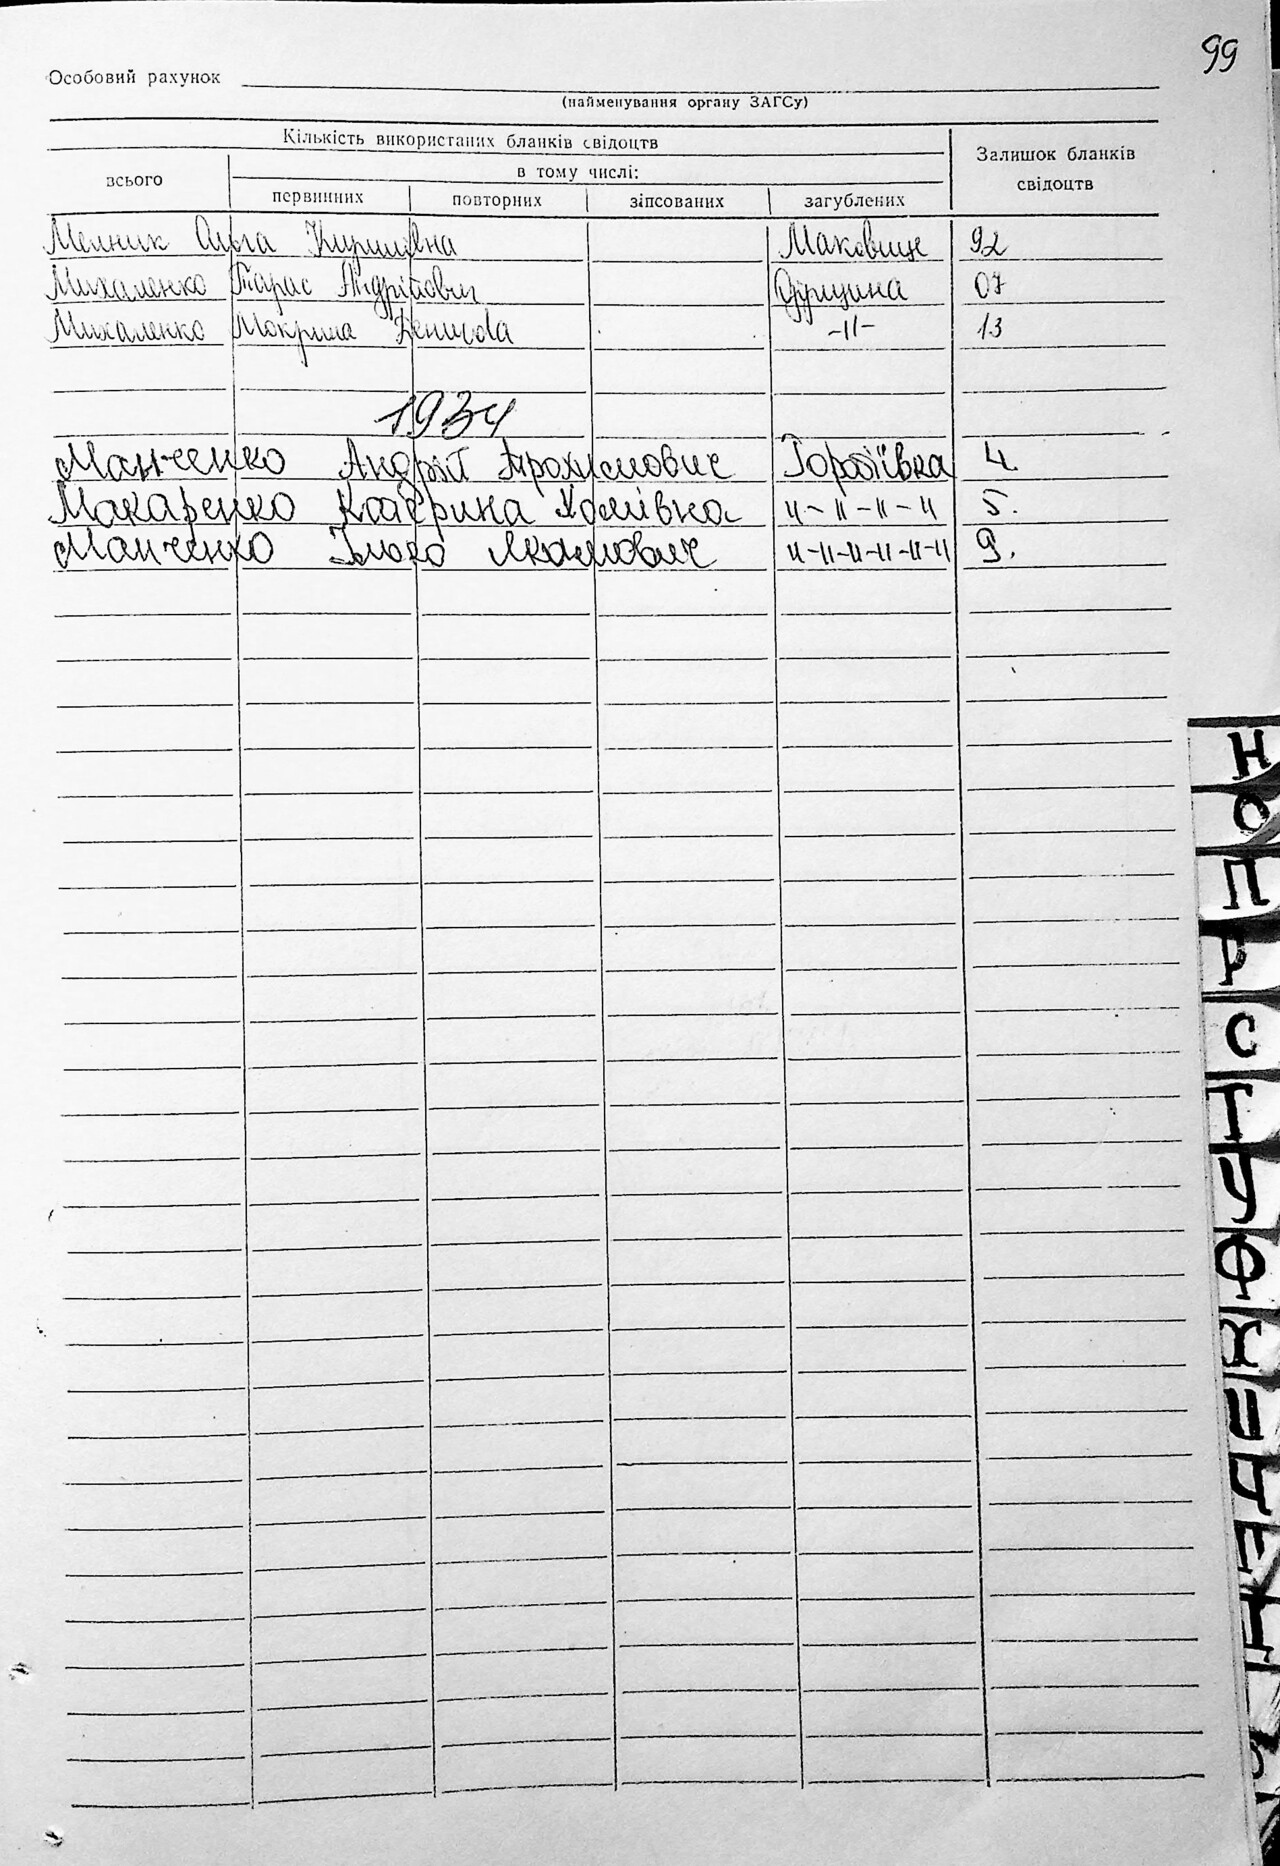 99
Особовий рахунок
(найменування органу ЗАГСу)
Кількість використаних бланків свідоцтв
Залишок бланків свідоцтв
всього
в тому числі:
первинних повторних зіпсованих загублених
Мелник Ольга Маковище 92
Михаленко Тарас Андрійович 07
Михаленко Мокрина -11- 13
1934
Манченко Андрій Трохимович 4
Макаренко Катерина Хомівна 11-11-11-11 5.
Манченко Якимович 11-11-11-11-11-11 9.
Н
О
П
Р
С
Т
У
Ф
Х